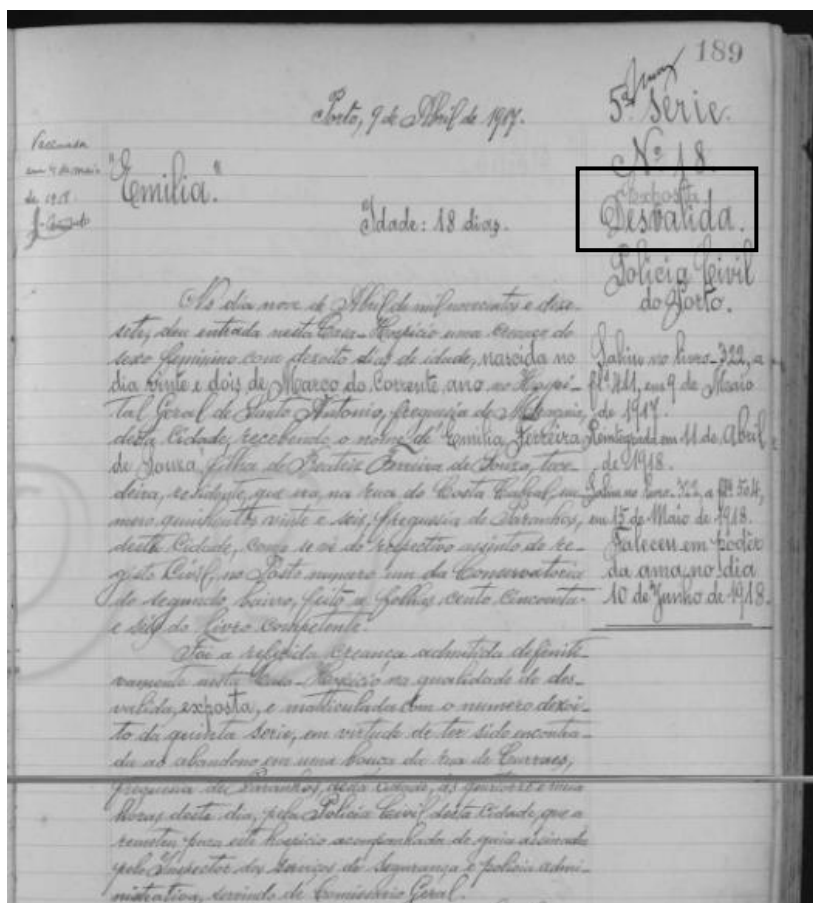 189
5ª Série.
Nº 18.
Exposta
Desvalida.
Policia Civil
do Porto.
Porto, 9 de Abril de 1917.
Vaccinada
em 4 de maio
de 1918.
"Emilia."
Idade: 18 dias.
No dia nove de Abril de mil novecentos e deze-
sete, deu entrada nesta Casa-Hospicio uma creança do
sexo feminino com dezoito dias de idade, nascida no
dia vinte e dois de Março do corrente ano no Hospi-
tal Geral de Santo Antonio, freguesia de Miragaia,
desta Cidade, recebendo o nome de Emilia Ferreira
de Souza, filha de Beatriz Ferreira de Souza, tece-
deira, residente, que era, na rua do Costa Cabral, nu-
mero quinhentos vinte e seis, freguesia de Paranhos,
desta Cidade, como se vê do respectivo assento de re-
gisto Civil, no Posto numero um da Conservatoria
do segundo bairro, feito a folhas cento cincoenta
e seis do livro competente.
Foi a referida creança admitida definiti-
vamente nesta Casa-Hospicio na qualidade de des-
valida, exposta, e matriculada com o numero dezoi-
to da quinta serie, em virtude de ter sido encontra-
da ao abandono em uma bouça da rua de Currais,
freguesia de Paranhos, nesta cidade, ás quatorze e meia
horas deste dia, pela Policia Civil desta Cidade, que a
remeteu para este hospicio acompanhada de guia assinada
pelo Inspector dos serviços de segurança e policia admi-
nistrativa, servindo de Comissario Geral.
Sahiu no livro-322, a
fls 411, em 9 de Maio
de 1917.
Reintegrada em 11 de Abril
de 1918.
Sahiu no livro-322, a fls 504,
em 15 de Maio de 1918.
Faleceu em podêr
da ama, no dia
10 de Junho de 1918.